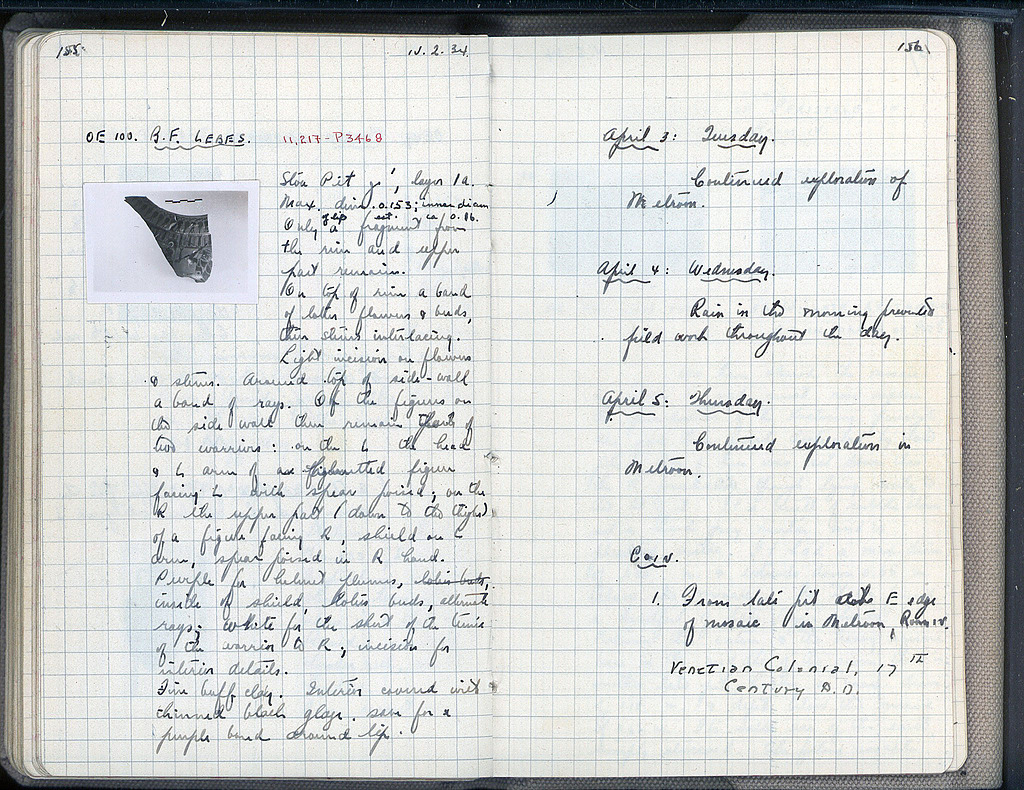 155
IV. 2. 34.
OE 100. B.F. LEBES.
11,217 - P3468
Stoa Pit layer 1a.
Max. dim. 0.153; inner diam
of lip est. ca 0.16.
Only a fragment from
the rim and upper
part remains.
On top of rim a band
of lotus flowers & buds,
their stems interlacing.
Light incision on flowers
& stems. Around top of side-wall
a band of rays. Of the figures on
the side wall there remain parts of
two warriors: on the L the head
& L arm of a helmeted figure
facing L with spear poised; on the
R the upper part (down to the thighs)
of a figure facing R, shield on L
arm, spear poised in R hand.
Purple for helmet plumes, lotus buds,
inside of shield, lotus buds, alternate
rays; white for the skirt of the tunic
of the warrior to R; incision for
interior details.
Fine buff clay. Interior covered with
thinned black glaze. save for a
purple band around lip.
156
April 3: Tuesday.
Continued exploration of
Metroon.
April 4: Wednesday.
Rain in the morning prevented
field work throughout the day.
April 5: Thursday.
Continued exploration in
Metroon.
Coin.
1. From late pit E edge
of mosaic in Metroon, Room IV.
Venetian Colonial, 17
Century A.D.